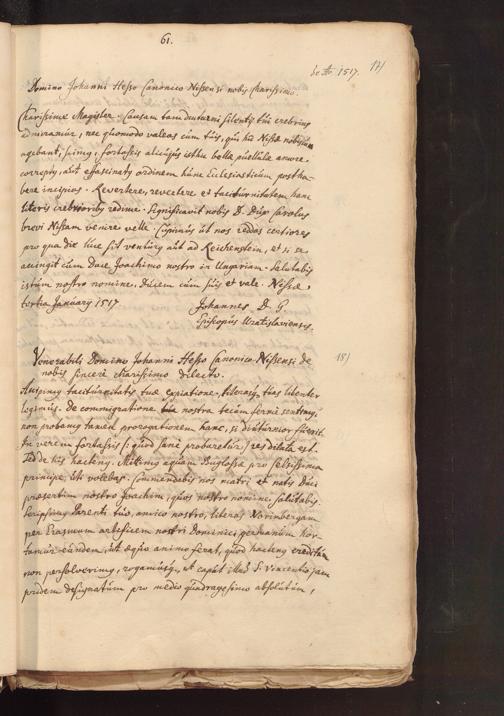 61.
de Ao. 1517. 17/
Domino Johanni Hesso Canonico Nissensi nobis charissimo.
Charissime Magister. Causam tam diuturni silentij tui crebrius
admiramur, nec quomodo valeas cum tuis, quid hic Nissae nobiscum
agebant, scimus, fortassis alicujus isthic bellae puellulae amore
correpty, aut effascinaty ordinem hunc Ecclesiasticum postha-
bere incipias. Revertere, revertere et taciturnitatem hanc
literis crebrioribus redime. Significavit nobis D. Dux Carolus
brevi Nissam venire velle. Cupimus ut nos reddas certiores
pro qua die huc sit venturus aut ad Reichenstein, et si se
accingit cum Duce Joachimo nostro in Ungariam. Salutabis
istum nostro nomine. Ducem cum suis et vale. Nissae
tertia January 1517
Johannes D. G.
Episcopus Wratislaviensis.
Venerabili Domino Johanni Hesso Canonico Nissensi de
nobis sincere charissimo dilecto.
18/
Accepimus taciturnitatis tuae expiatione, literasq tuas libenter
legimus. De commigratione nostra tecum ferme sentimus,
non probamus tamen prorogationem hanc, si diuturnior fuerit.
In verem fortassis (quod sane probaretur) res dilata est.
Sed de his hactenus. Mittimus aquam Buglossae pro Celsissima
principe, uti volebas. Commendabis nos matri et natis Duci
praesertim nostro Joachim, quos nostro nomine salutabis
Scripsimus Parenti tuo, amico nostro, literas Norimbergam
per Erasmum artificem nostri Dominici germanum hor-
tamur eundem, ut aequo animo ferat, quod hactenus creditum
non persolverimus, rogamusq, ut caput illud S. Vincentio jam
pridem designatum pro medio quadragesimo absolutum,